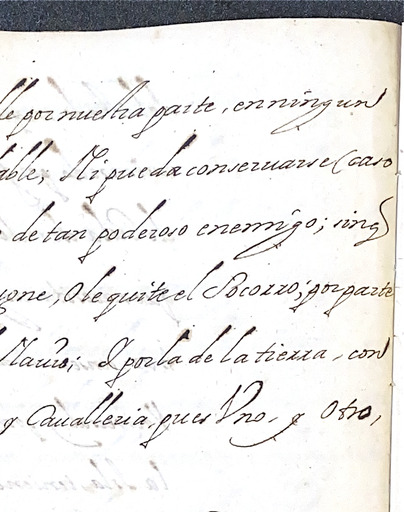 le por nuestra parte, en ningun
able, Ni pueda conseruarse (caso
de tan poderoso enemigo; sin q
pone, O le quite el Socorro; por parte
Y por la de la tierra, con
y Caualleria, pues Vno, y Otro,